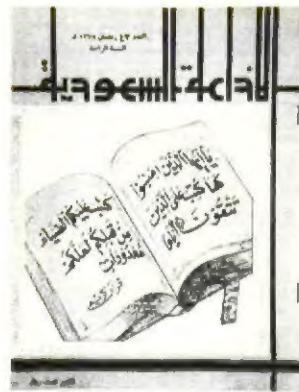 العدد رمضان هـ
السنة الرابعة
الإذاعة السعودية
يا أيها الذين آمنوا
كتب عليكم الصيام
كما كتب على الذين
من قبلكم لعلكم
تتقون
معدودات
قرآن كريم